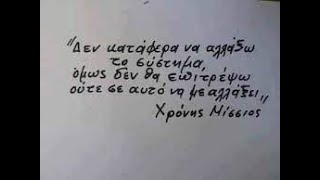 "Δεν κατάφερα να αλλάξω
το σύστημα,
όμως δεν θα επιτρέψω
ούτε σε αυτό να με αλλάξει"
Χρόνης Μίσσιος